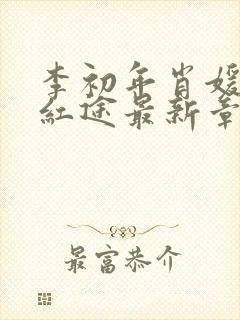 李初年肖媛
红途最新章
最富恭介